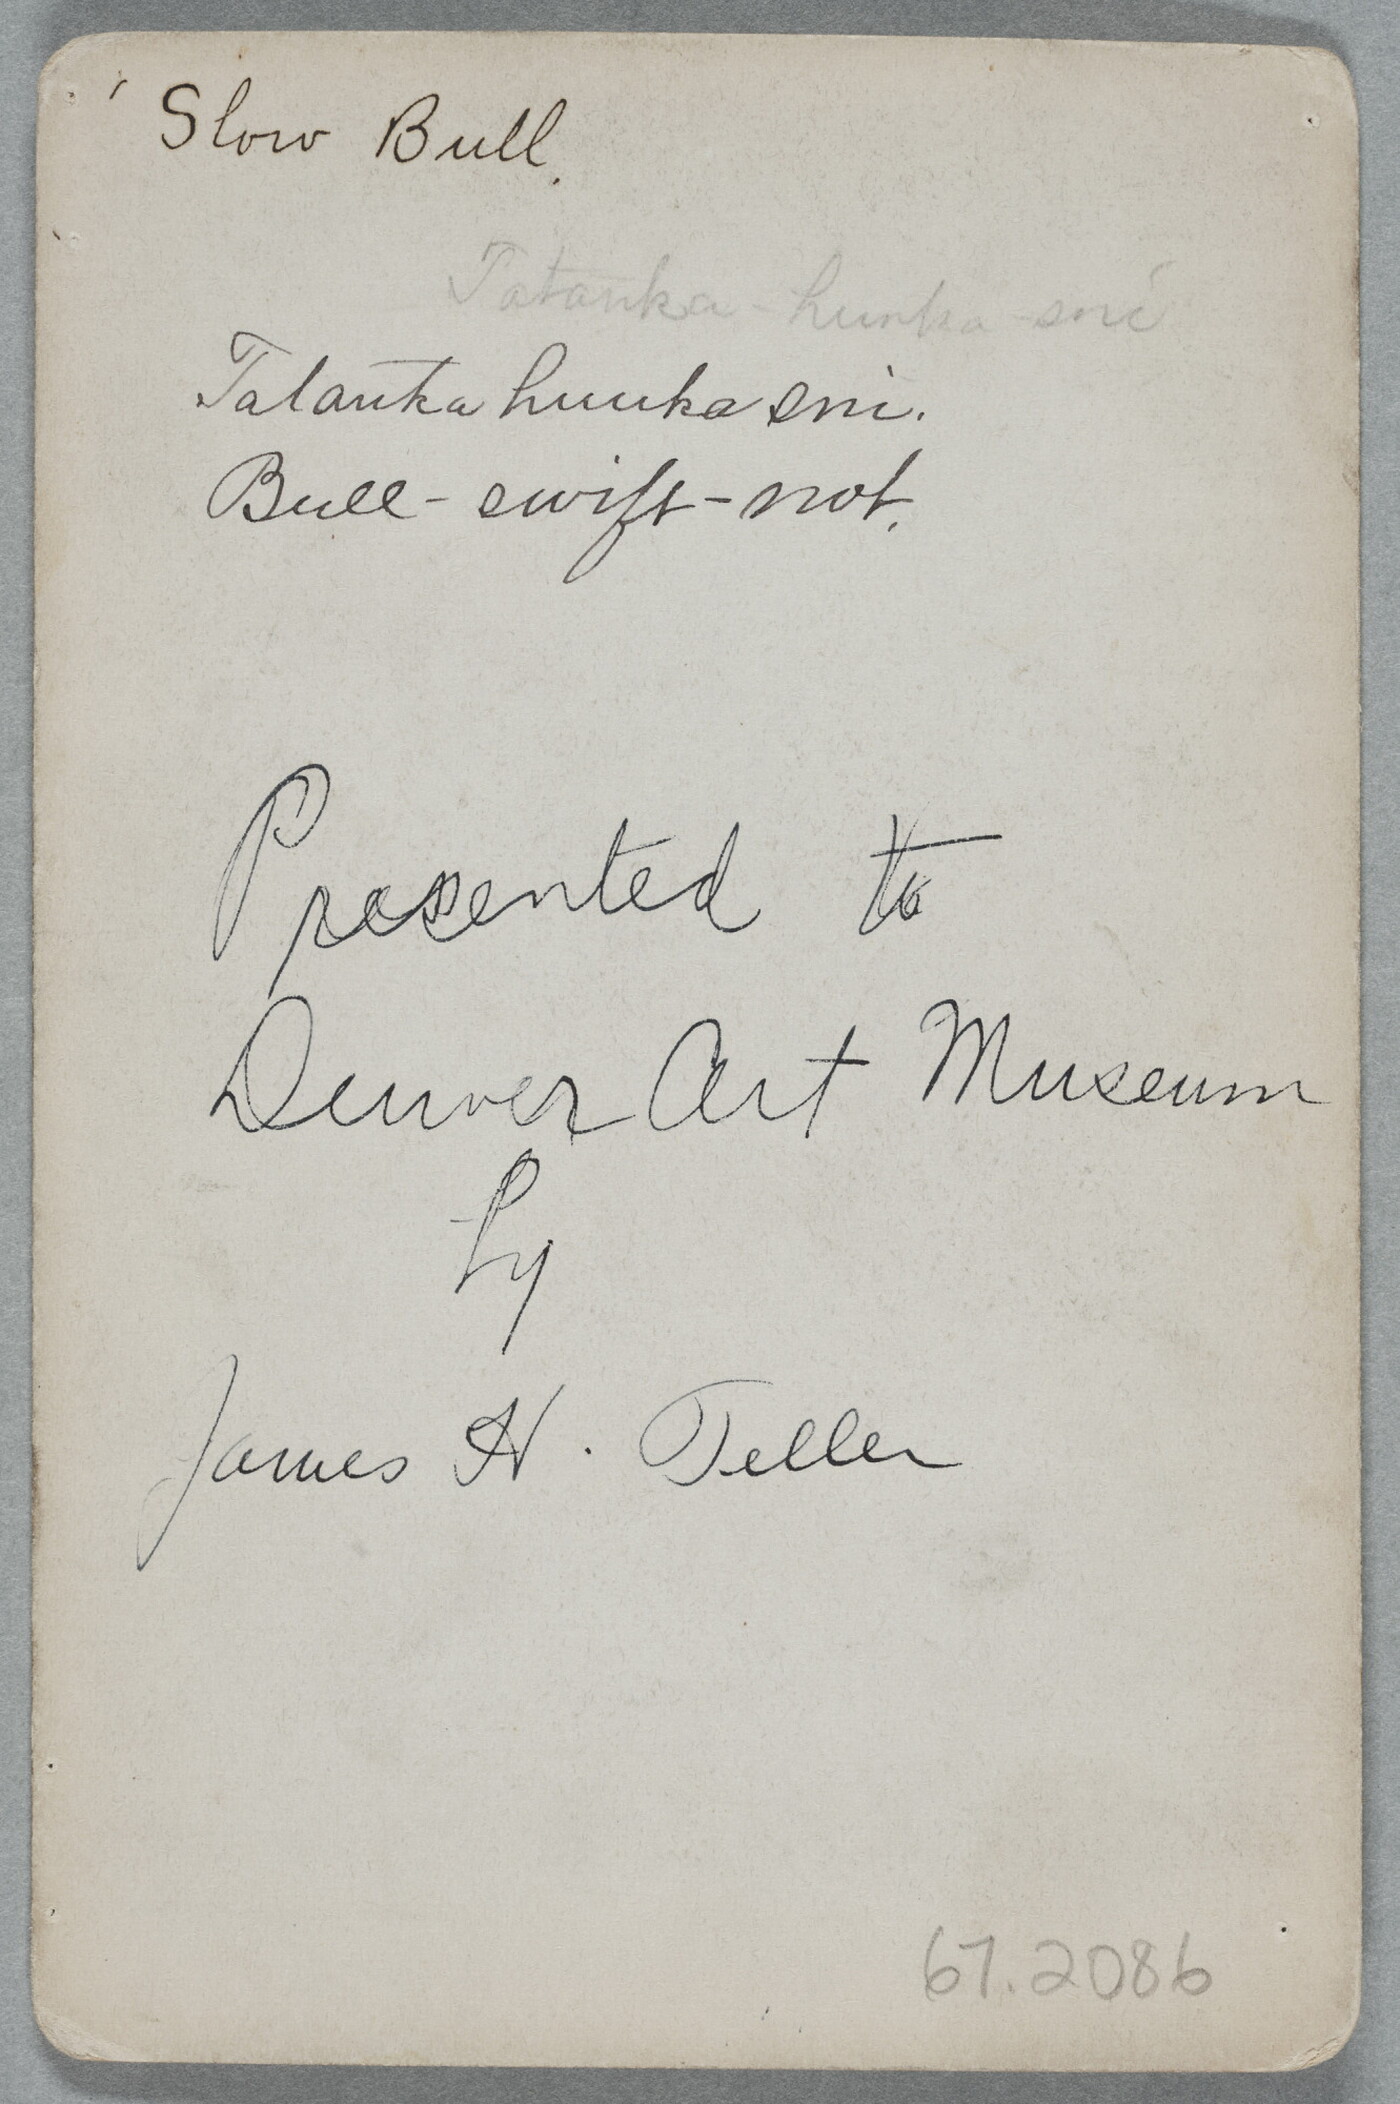 Slow Bull.
Tatanka-hunka-sni
Tatanka hunka sni.
Bull-swift-not.
Presented to
Denver Art Museum
by
James H. Teller
67.2086